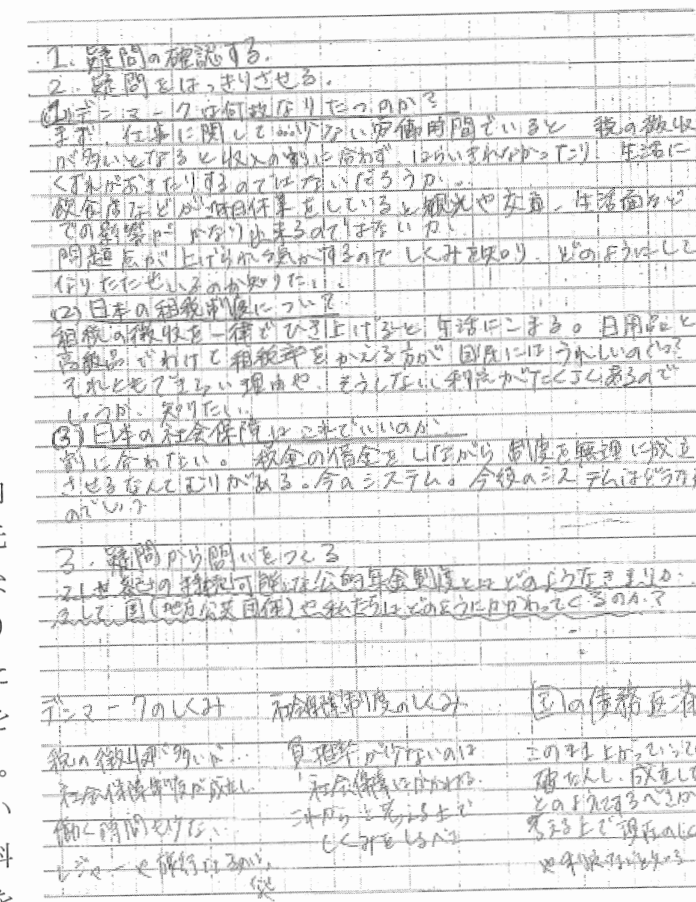 1. 疑問の確認する.
2. 疑問をはっきりさせる.
(1)デンマークは何故なりたつのか?
まず、仕事に関して 少ない労働時間でいると 税の徴収
が多いとなると収入の割に合わず、はらいきれなかったり 生活に
くずれがおきたりするのではないだろうか.
飲食店などが 休業をしていると観光や 、生活面など
での影響が かなり出来るのではないか.
問題点が上げられる気がするのでしくみを知り、どのようにして
なりたたせいるのか知りたい.
(2)日本の租税制度について
租税の徴収を一律でひき上げると 生活にこまる。日用品と
高級品でわけて租税率をかえる方が 国民には うれしいのでは?
それともできない理由や、そうしない利点がたくさんあるので
しょうか、知りたい.
(3)日本の社会保障はこれでいいのか
割に合わない。税金の借金をしながら 制度を無理に成立
させるなんてむりがある。今のシステム。今後のシステムはどうな
のでしょう
3. 疑問から問いをつくる
21世紀の持続可能な公的年金制度とはどのようなきまりか.
そして、国(地方公共団体)や私たちはどのようにかかわってくるのか?
デンマークのしくみ 社会保障制度のしくみ 国の債務返済
税の徴収が多いが…
社会保障制度が成立し
働く時間も少ない
レジャーや旅行
負担率が少ないのは
社会保障に
これからを考える上で
しくみをしるべき
このまま上がっていって
破たんし、成立して
どのようにするべきか
考える上で現在の